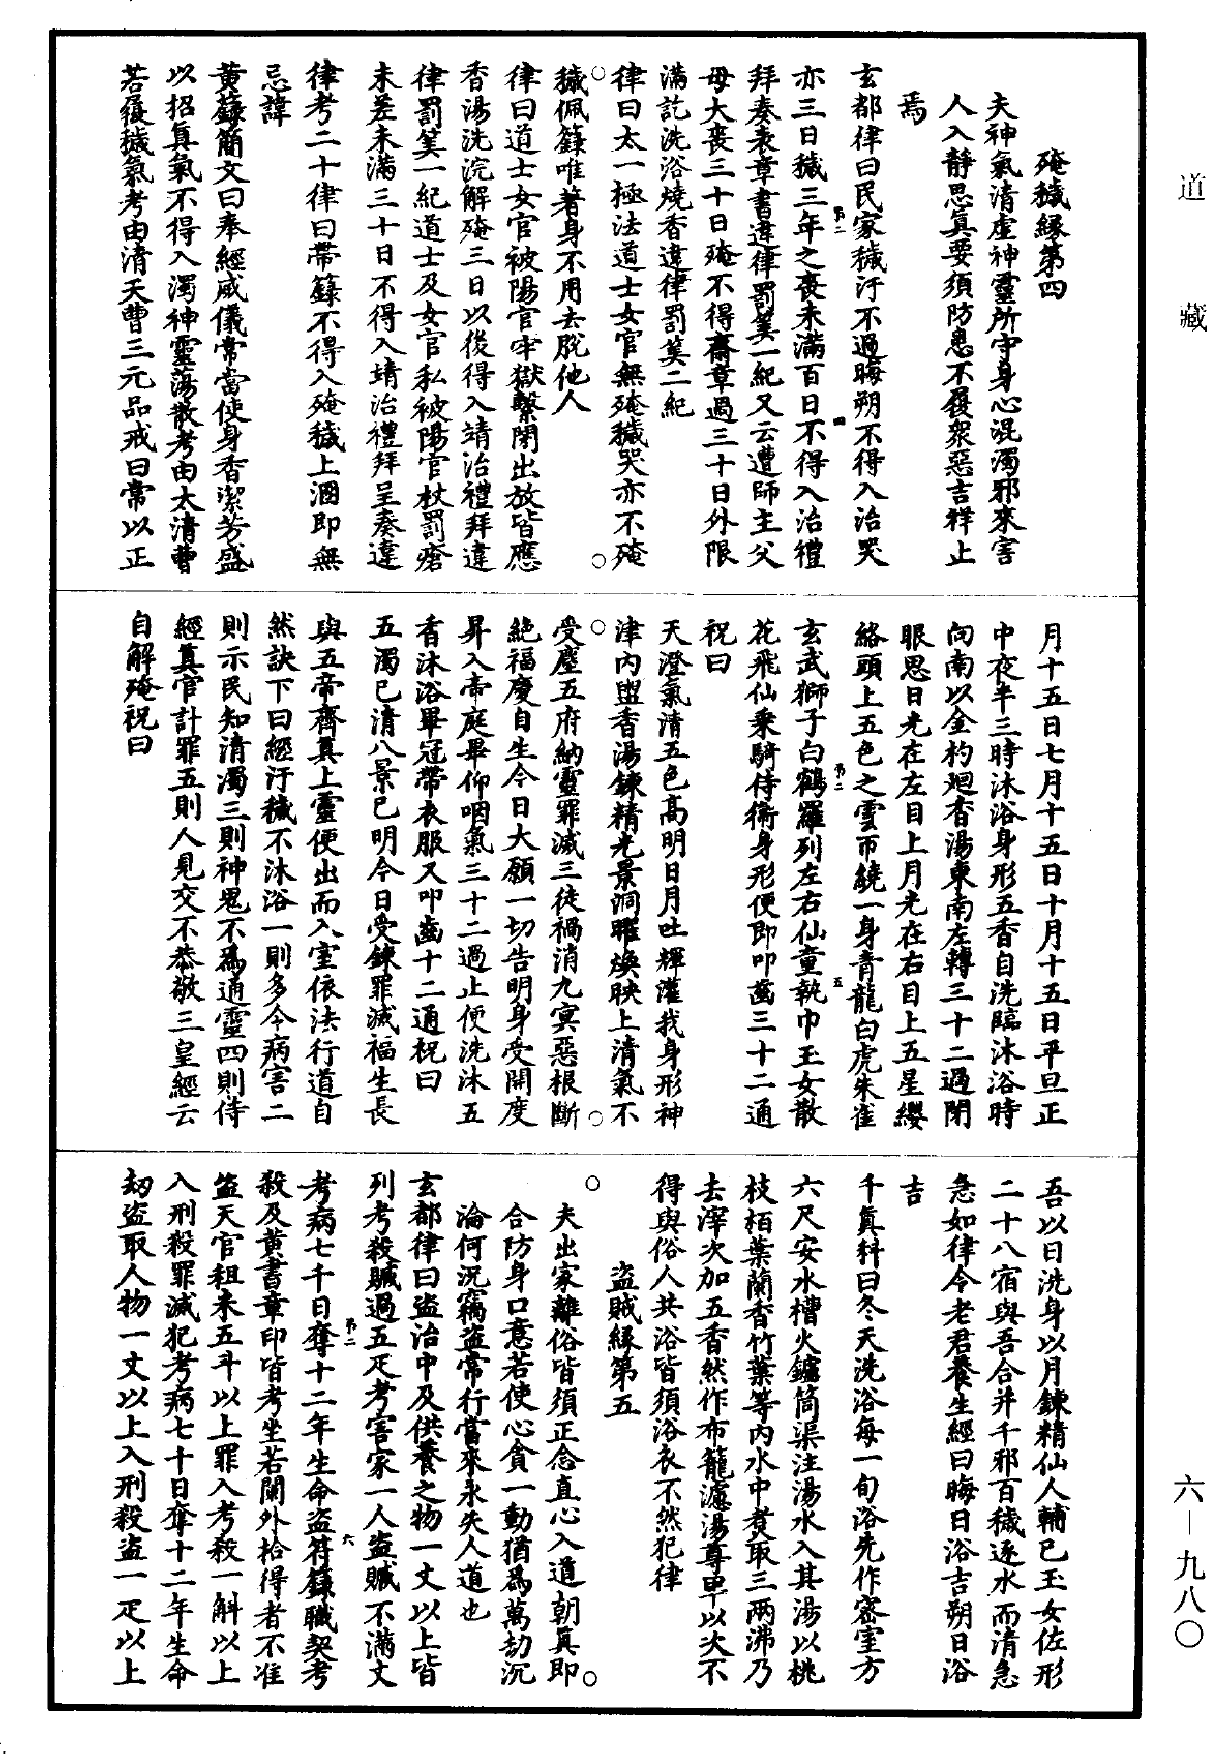 道藏
六—九八〇
殗穢緣第四
夫神氣清虛神靈所守身心混濁邪來害
人入靜思真要須防患不履衆惡吉祥止
焉
玄都律曰民家穢汙不過晦朔不得入治哭
第二
四
亦三日穢三年之喪未滿百日不得入治禮
拜奏表章書違律罰筭一紀又云遭師主父
母大喪三十日殗不得齋章過三十日外限
滿訖洗浴燒香違律罰筭二紀
律曰太一極法道士女官無殗穢哭亦不殗
穢佩籙唯著身不用去脫他人
律曰道士女官被陽官牢獄繫閉出放皆應
香湯洗浣解殗三日以後得入靖治禮拜違
律罰筭一紀道士及女官私被陽官杖罰瘡
未差未滿三十日不得入靖治禮拜呈奏違
律考二十律曰帶籙不得入殗穢上溷即無
忌諱
黃籙簡文曰奉經威儀常當使身香潔芳盛
以招真氣不得入濁神靈蕩散考由太清曹
若履穢氣考由清天曹三元品戒曰常以正
月十五日七月十五日十月十五日平旦正
中夜半三時沐浴身形五香自洗臨沐浴時
向南以金杓迴香湯東南左轉三十二過閉
眼思日光在左目上月光在右目上五星纓
絡頭上五色之雲帀繞一身青龍白虎朱雀
第二
五
玄武獅子白鶴羅列左右仙童執巾玉女散
花飛仙乘騎侍衛身形便即叩齒三十二通
祝曰
天澄氣清五色高明日月吐輝灌我身形神
津內盥香湯鍊精光景洞曜煥映上清氣不
受塵五府納靈罪滅三徒禍消九冥惡根斷
絕福慶自生今日大願一切告明身受開度
昇入帝庭畢仰咽氣三十二過止便洗沐五
香沐浴畢冠帶衣服又叩齒十二通祝曰
五濁已清八景已明今日受鍊罪滅福生長
與五帝齊真上靈便出而入室依法行道自
然訣下曰經汙穢不沐浴一則多令病害二
則示民知清濁三則神鬼不為通靈四則侍
經真官計罪五則人見交不恭敬三皇經云
自解殗祝曰
吾以日洗身以月鍊精仙人輔已玉女佐形
二十八宿與吾合并千邪百穢逐水而清急
急如律令老君養生經曰晦日浴吉朔日浴
吉
千真科曰冬天洗浴每一旬浴先作密室方
六尺安水槽火鑪筒渠注湯水入其湯以桃
枝栢葉蘭香竹葉等內水中煑取三兩沸乃
去滓次加五香然作布籠濾湯尊卑以次不
得與俗人共浴皆須浴衣不然犯律
盜賊緣第五
夫出家離俗皆須正念直心入道朝真即
合防身口意若使心貪一動猶為萬劫沉
淪何況竊盜常行當來永失人道也
玄都律曰盜治中及供養之物一丈以上皆
列考殺贓過五疋考害家一人盜贓不滿丈
考病七千日奪十二年生命盜符籙職契考
第二
六
殺及黃書章印皆考坐若闌外拾得者不准
盜天官租米五斗以上罪入考殺一斛以上
入刑殺罪減犯考病七十日奪十二年生命
劫盜取人物一丈以上入刑殺盜一疋以上